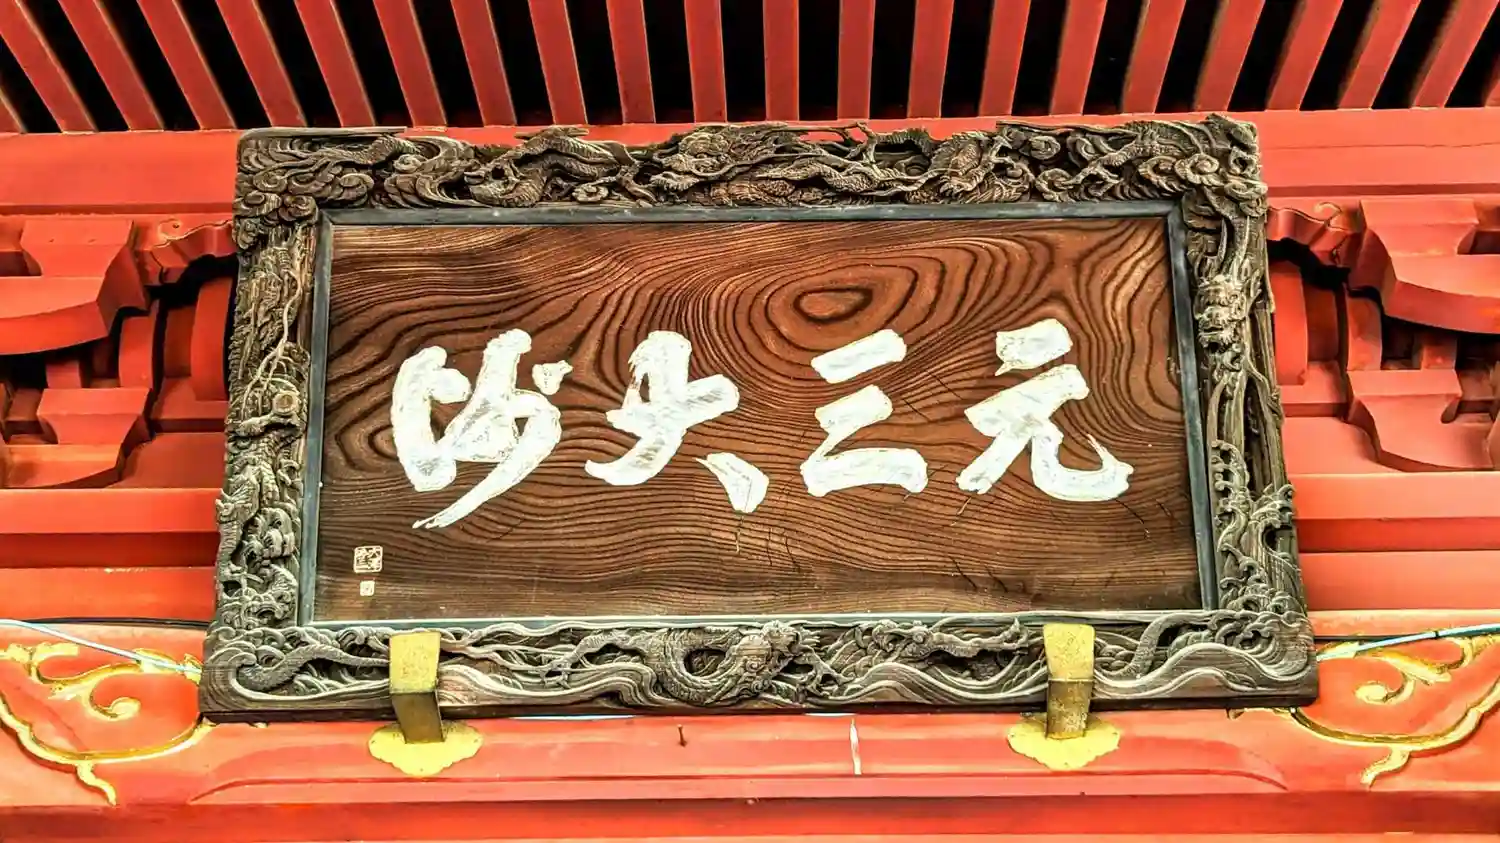 元三大師